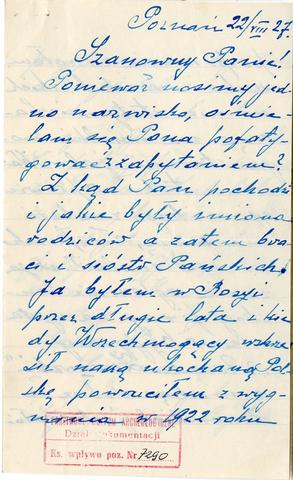 Poznań 22/VIII 27.
Szanowny Panie!
Ponieważ nosimy jed
no nazwisko, ośmie-
lam się Pana pofaty-
gować zapytaniem?
Z kąd Pan pochodzi
i jakie były imiona
rodziców a zatem bra
ci i sióstr Pańskich?
Ja byłem w Rosyi
przez długie lata i kie
dy Wszechmogący wskrze
sił naszą ukochaną Pol
skę powróciłem z wyg-
nania w 1922 roku
Dział Dokumentacji
Ks. wpływu poz. Nr 7290